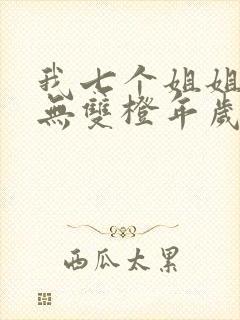 我七个姐姐
無雙橙年歲
西瓜太累